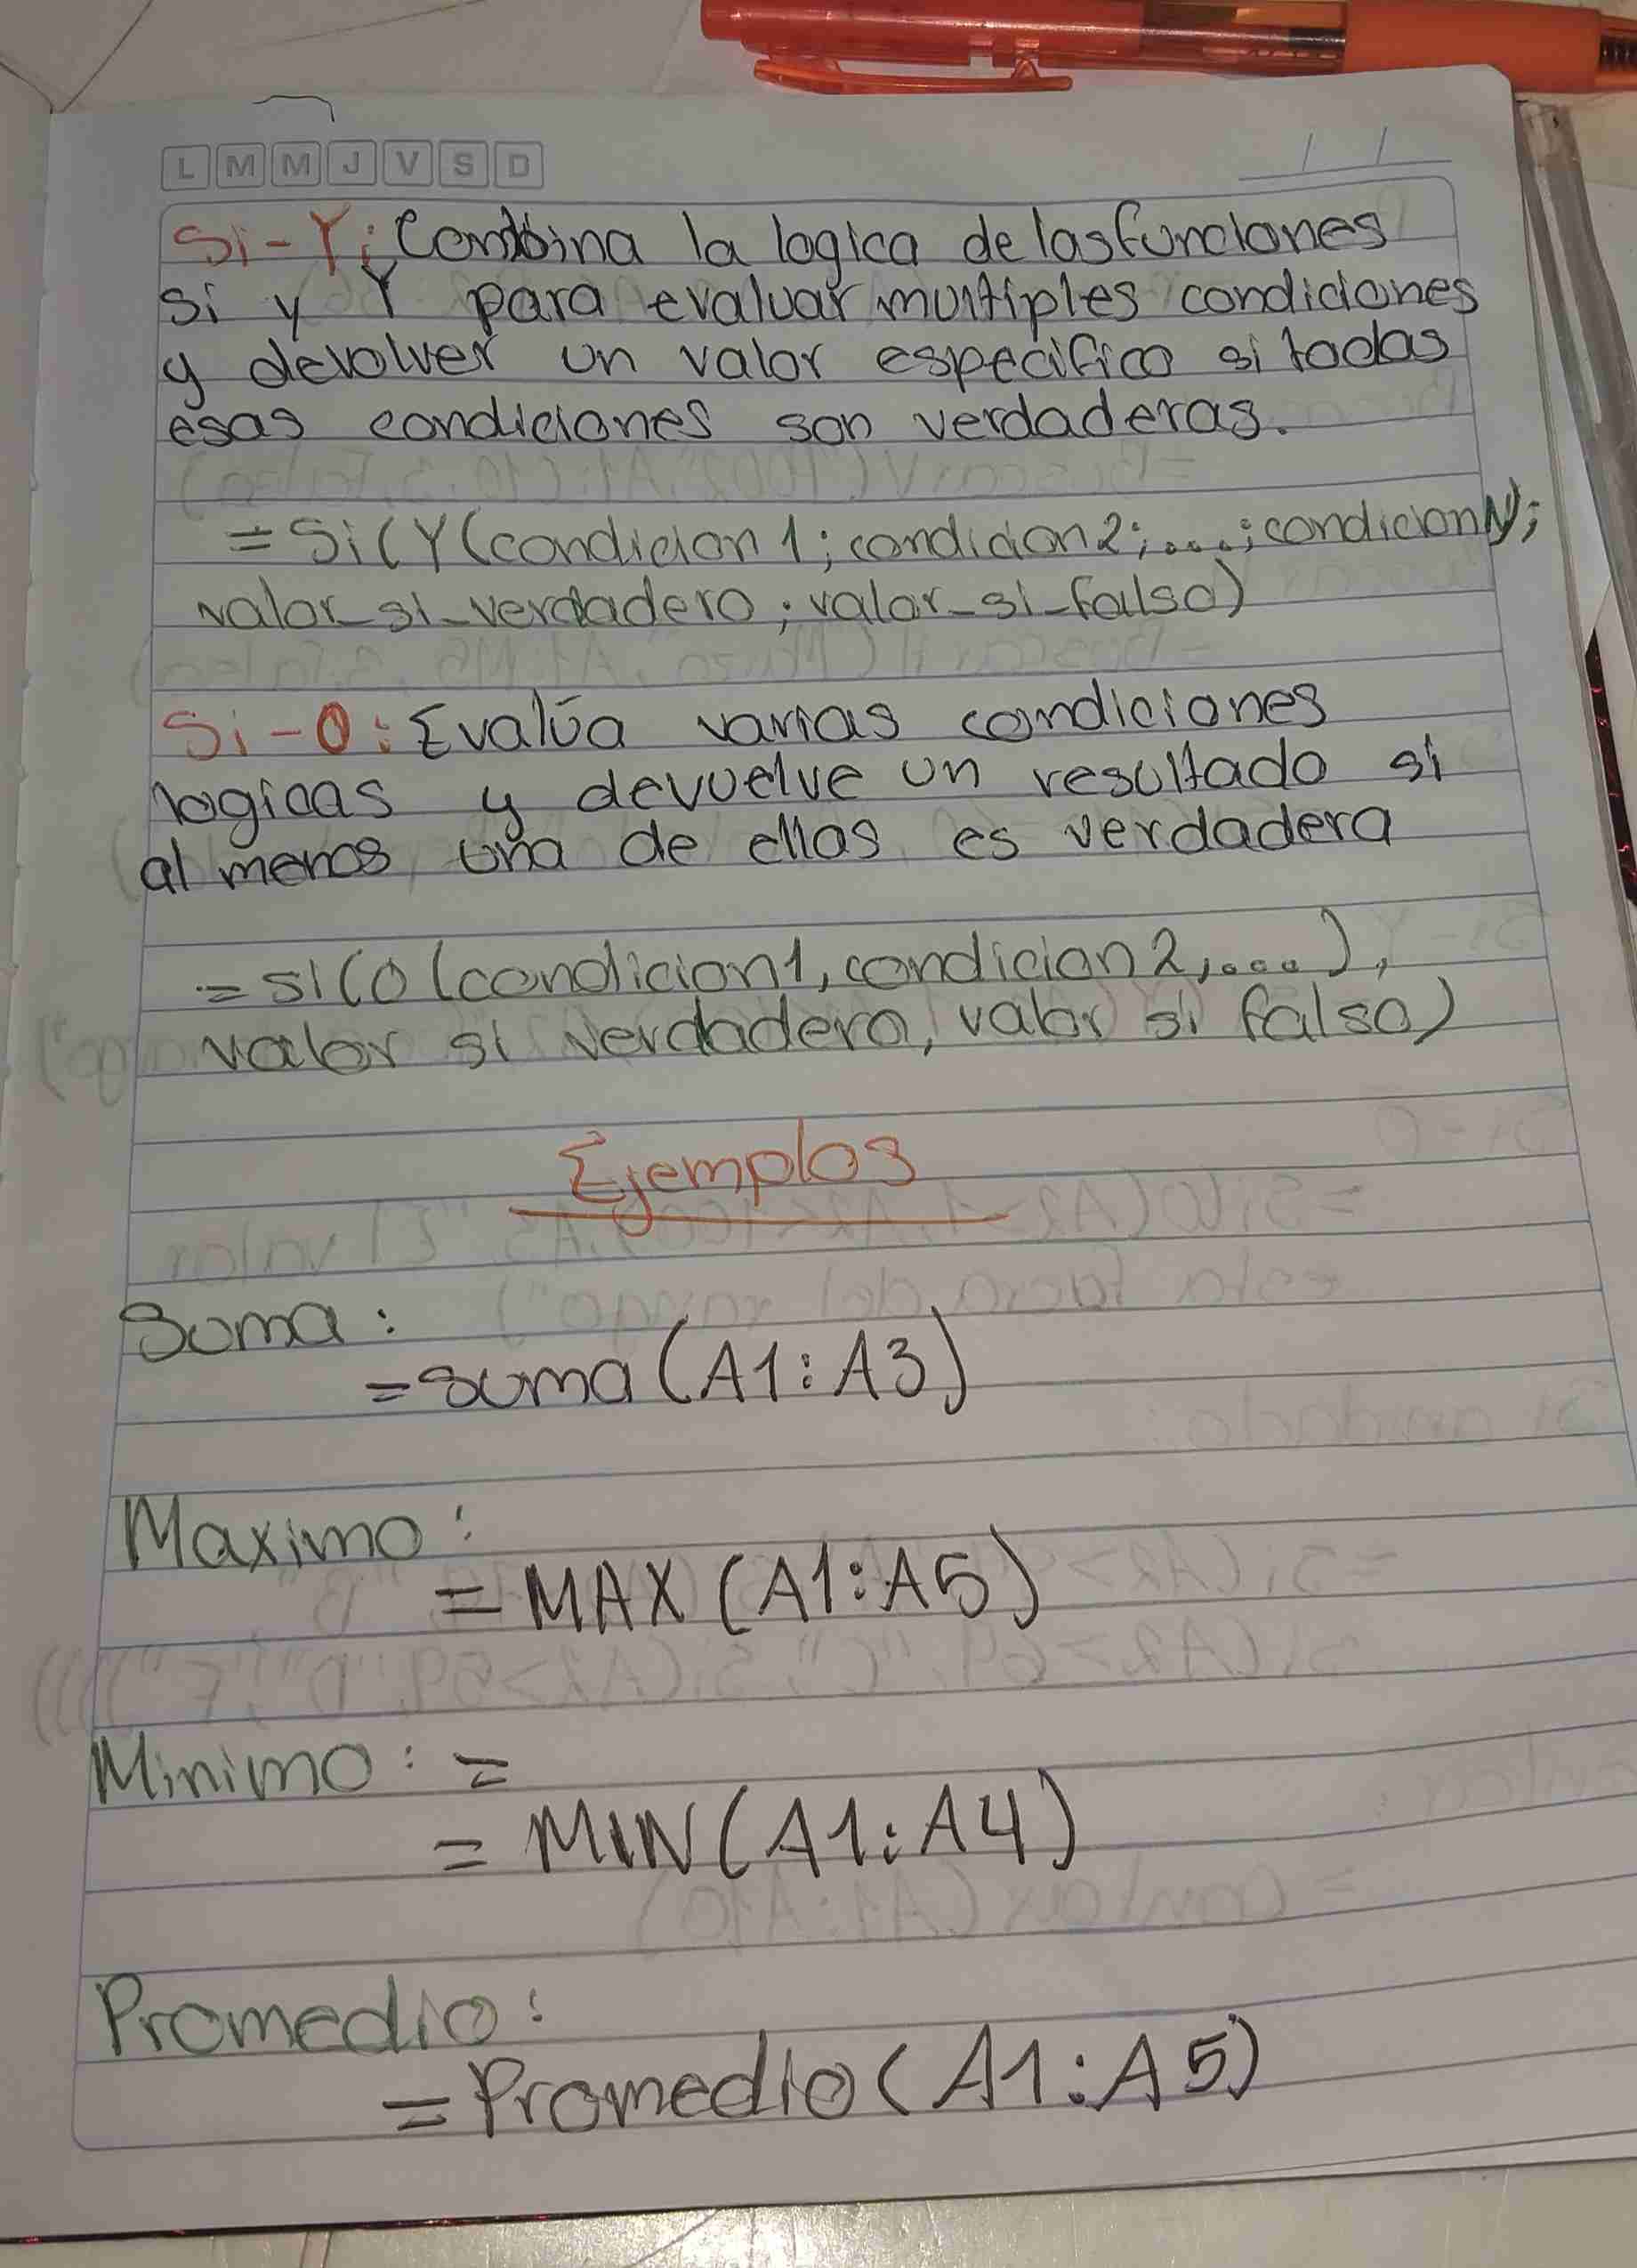 L M M J V S D
Si-Y: Combina la logica de las funciones
si y Y para evaluar multiples condiciones
y devolver un valor especifico si todas
esas condiciones son verdaderas.
=Si(Y(condicion1;condicion2;...;condicionN);
valor_si_verdadero;valor_si_falso)
Si-O: Evalúa varias condiciones
logicas y devuelve un resultado si
al menos una de ellas es verdadera
=si(O(condicion1,condicion2,...),
valor si verdadero, valor si falso)
Ejemplos
Suma:
=suma(A1:A3)
Maximo:
=MAX(A1:A5)
Minimo: =
=MIN(A1:A4)
Promedio:
=Promedio(A1:A5)